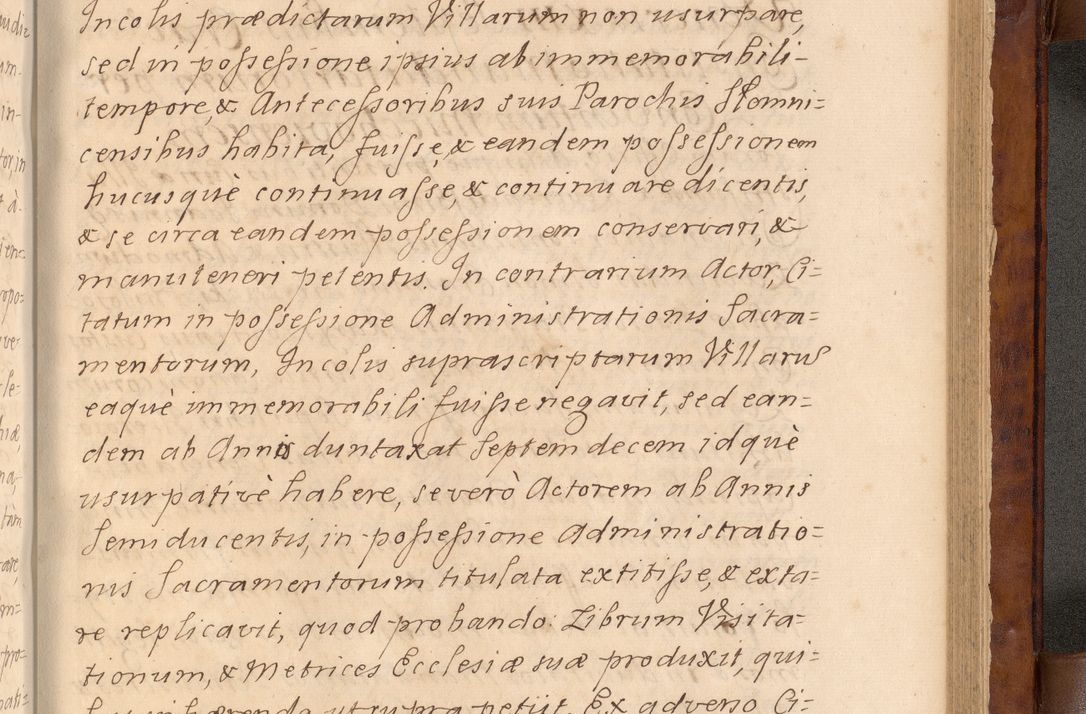 Incolis prædictarum Villarum non usurpare,
sed in possessione ipsius ab immemorabili-
tempore, & Antecessoribus suis Parochis Słomni=
censibus habita, fuisse, & eandem possessionem
hucusquè continuasse, & continuare dicentis,
& se circa eandem possessionem conservari, &
manuteneri petentis. In contrarium Actor, Ci=
tatum in possessione Administrationis Sacra=
mentorum, Incolis suprascriptarum Villarum
eaquè immemorabili fuisse negavit, sed ean=
dem ab Annis duntaxat Septem decem idquè
usurpativè habere, se verò Actorem ab Annis
Semiducentis, in possessione Administratio=
nis Sacramentorum titulata extitisse, & exta=
re replicavit, quod probando: Librum Visita=
tionum, & Metrices Ecclesiæ suæ produxit, qui=
bus inhærendo ut supra petiit. Ex adverso Ci=